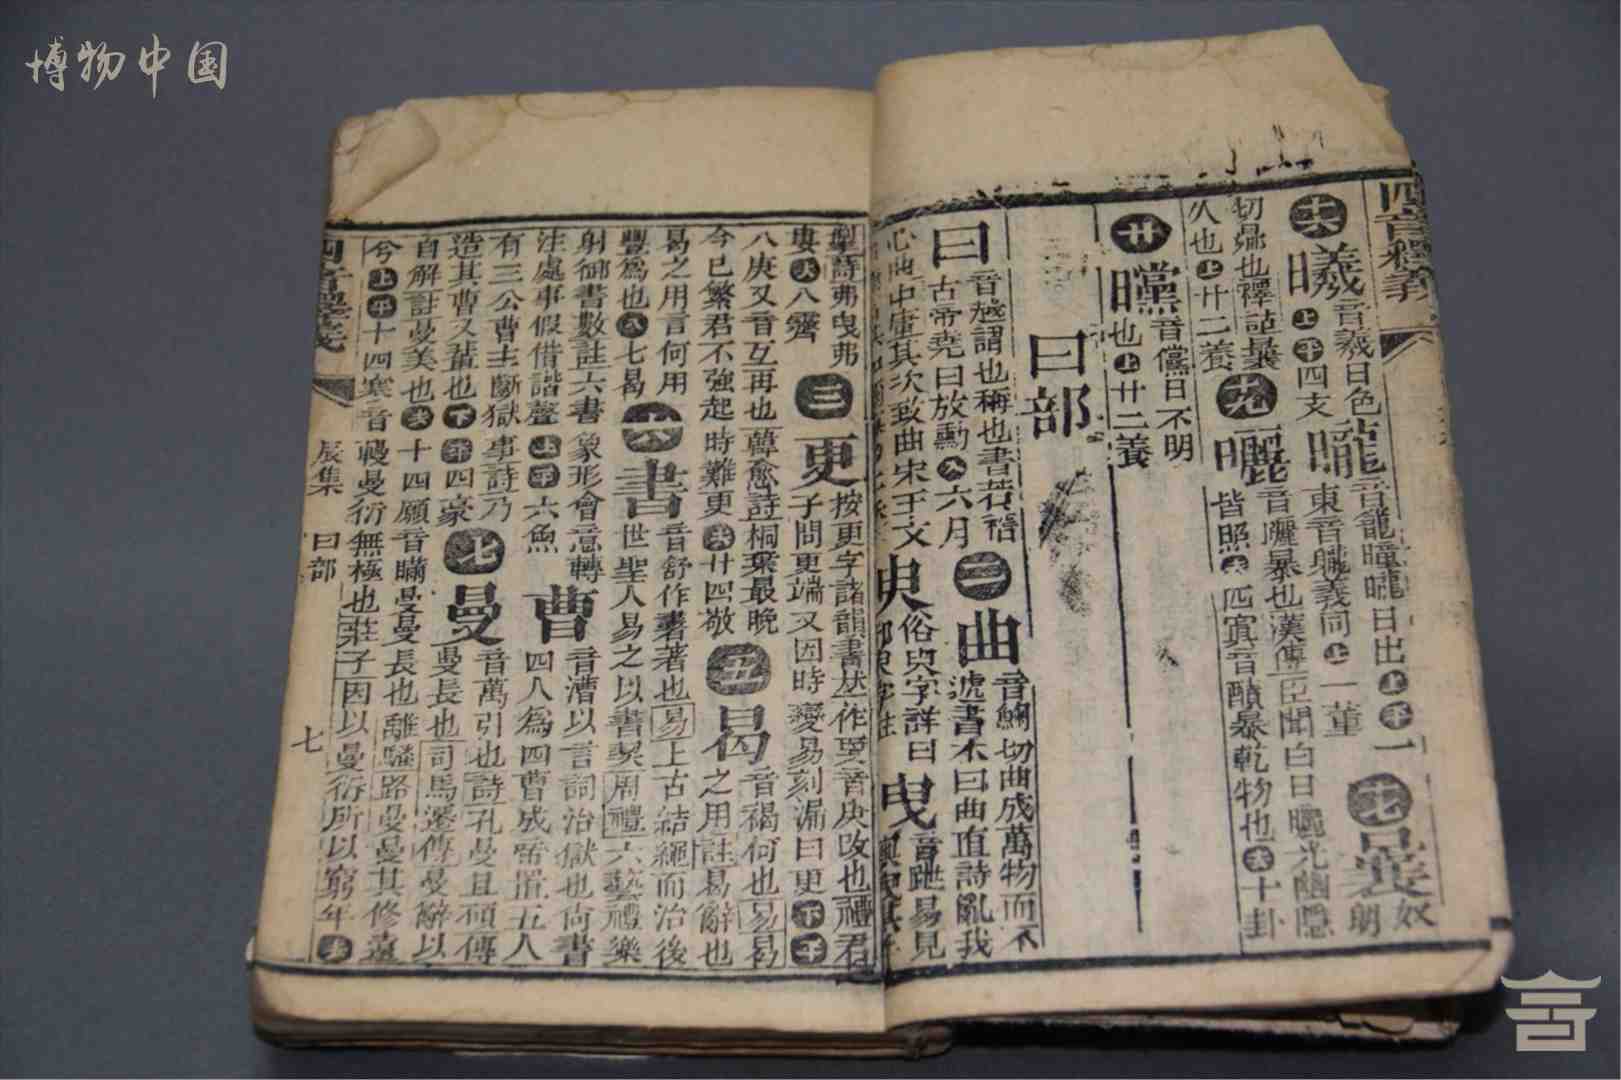 博物中国
四音釋義
㊅曦音羲日色上平四支曨音龍曈曨日出上平一
東音曨義同上一董𣊽奴朗
切曩也釋詁曩
久也上廿二養曬音灑暴也漢傳臣聞白日曬光幽隱
皆照去四寘音𧷎暴乾物也去十卦
廿曭音儻日不明
也上廿二養
曰部
曰音越謂也稱也書若稽
古帝堯曰放勳入六月二曲音鞠切曲成萬物而不
號書木曰曲直詩亂我
心曲中庸其次致曲宋王文
俗與字詳曰曳音跇易見
掣詩弗曳弗
婁去八霽三更按更字諸韻書並作更音庚改也禮君
子問更端又因時變易刻漏曰更下平
八庚又音互再也韓愈詩桐葉最晚
今已繁君不強起時難更去廿四敬五曷音褐何也易曷
之用註曷辭也
曷之用言何用
豐爲也入七曷六書音舒作書著也易上古結繩而治後
世聖人易之以書契周禮六藝禮樂
射御書數註六書象形會意轉
注處事假借諧聲上平六魚曹音漕以言詞治獄也尚書
四人為四曹成帝置五人
有三公曹主斷獄事詩乃
造其曹又輩也下平四豪七曼音萬引也詩孔曼且碩傳
曼長也司馬遷傳曼辭以
自解註曼美也去十四願音瞞曼曼長也離騷路曼曼其修遠
兮上平十四寒音鞔曼衍無極也莊子因以曼衍所以窮年去
四音釋義
辰集
曰部
七